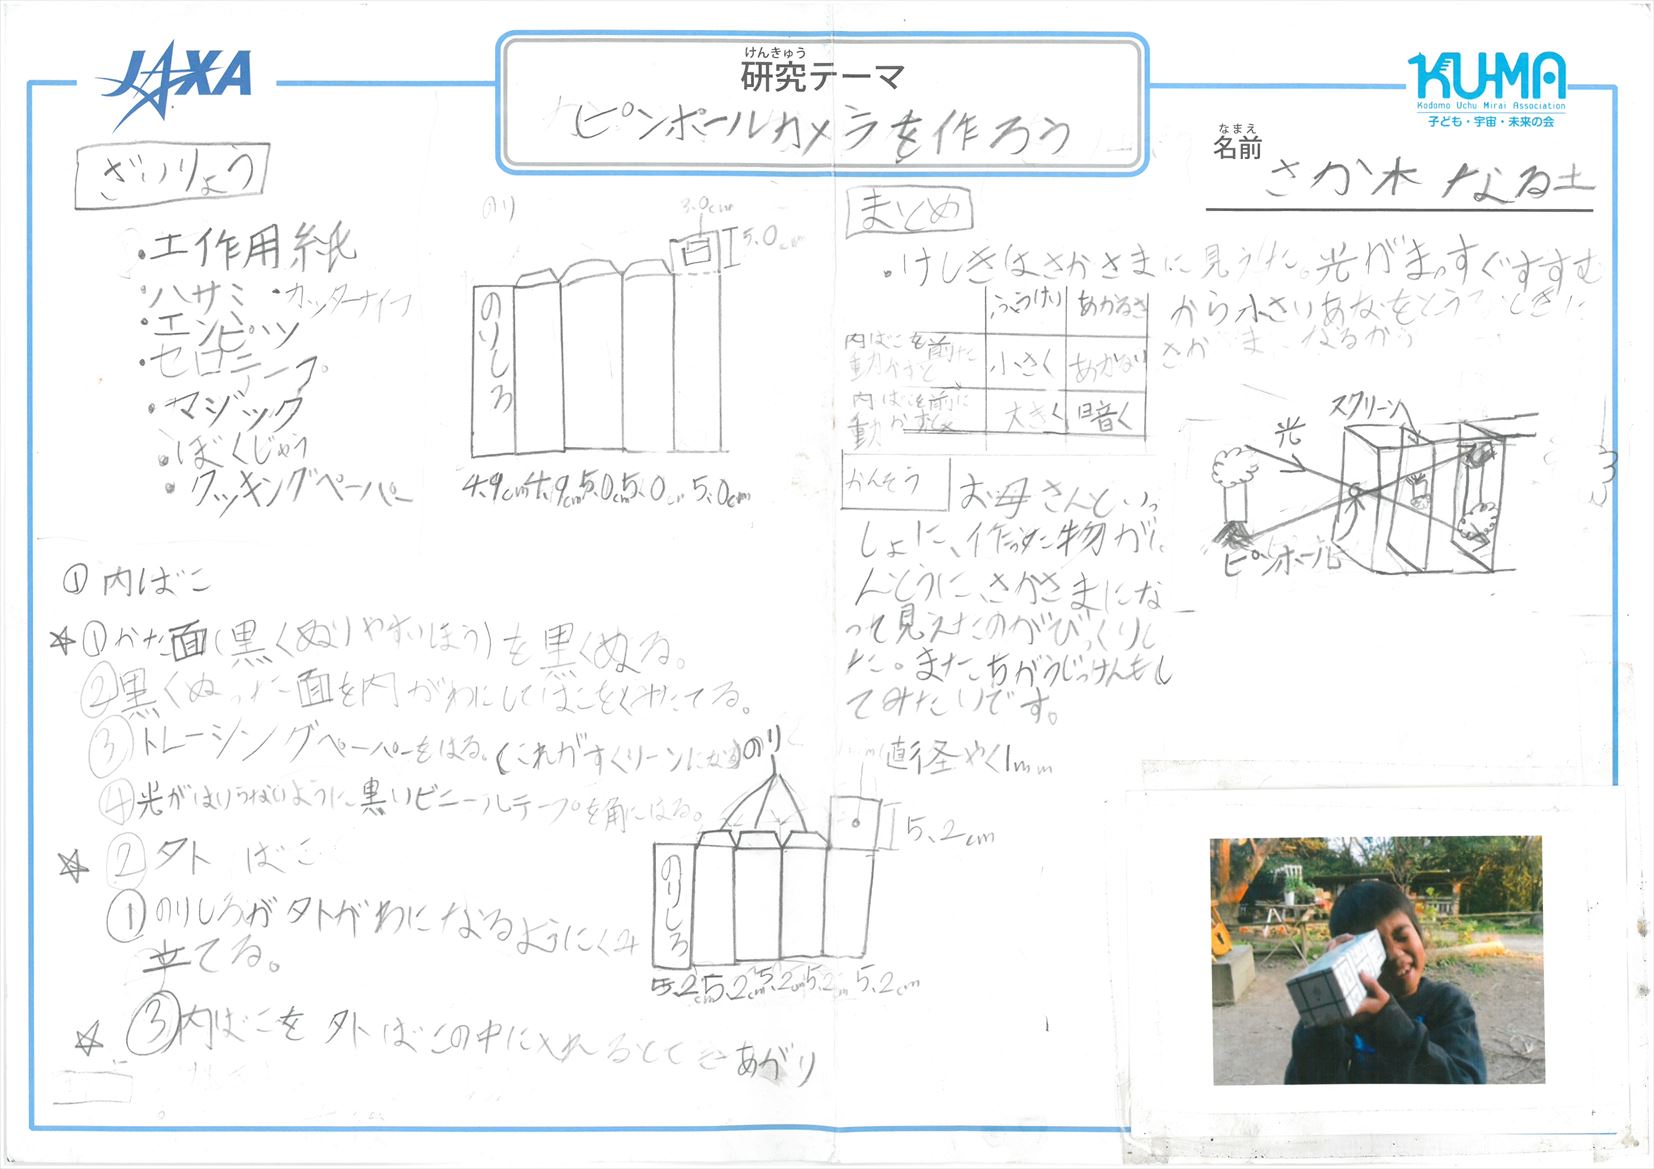 JAXA
けんきゅう
研究テーマ
ピンポールカメラを作ろう
KU-MA
Kodomo Uchu Mirai Association
子ども・宇宙・未来の会
なまえ
名前
さか木 なる土
ざいりょう
・工作用紙
・ハサミ ・カッターナイフ
・エンピツ
・セロテープ
・マジック
・ぼくじゅう
・クッキングペーパー
のり
3.0cm
5.0cm
のりしろ
4.9cm 4.9cm 5.0cm 5.0cm 5.0cm
① 内ばこ
☆①かた面(黒くぬりやすいほう)を黒くぬる。
②黒くぬった面を内がわにしてばこをくみたてる。
③トレーシングペーパーをはる。(これがすくリーンになる)
④光がはいらないように黒いビニールテープを角にはる。
☆②外ばこ
①のりしろが外がわになるようにくみ
立てる。
☆③内ばこを外ばこの中に入れるとできあがり
のり
直径やく1mm
5.2cm
のりしろ
5.2cm 5.2cm 5.2cm 5.2cm 5.2cm
まとめ
・けしきはさかさまに見えた。光がまっすぐすすむ
から小さいあなをとうるときに
さかさまになるから
ふうけい あかるさ
内ばこを前に
動かすと 小さく あかるい
内ばこを前に
動かすと 大きく 暗く
スクリーン
光
ピンホール
かんそう
お母さんといっ
しょに、作った物がほ
んとうに、さかさまにな
って見えたのがびっくりし
た。またちがうじっけんもし
てみたいです。